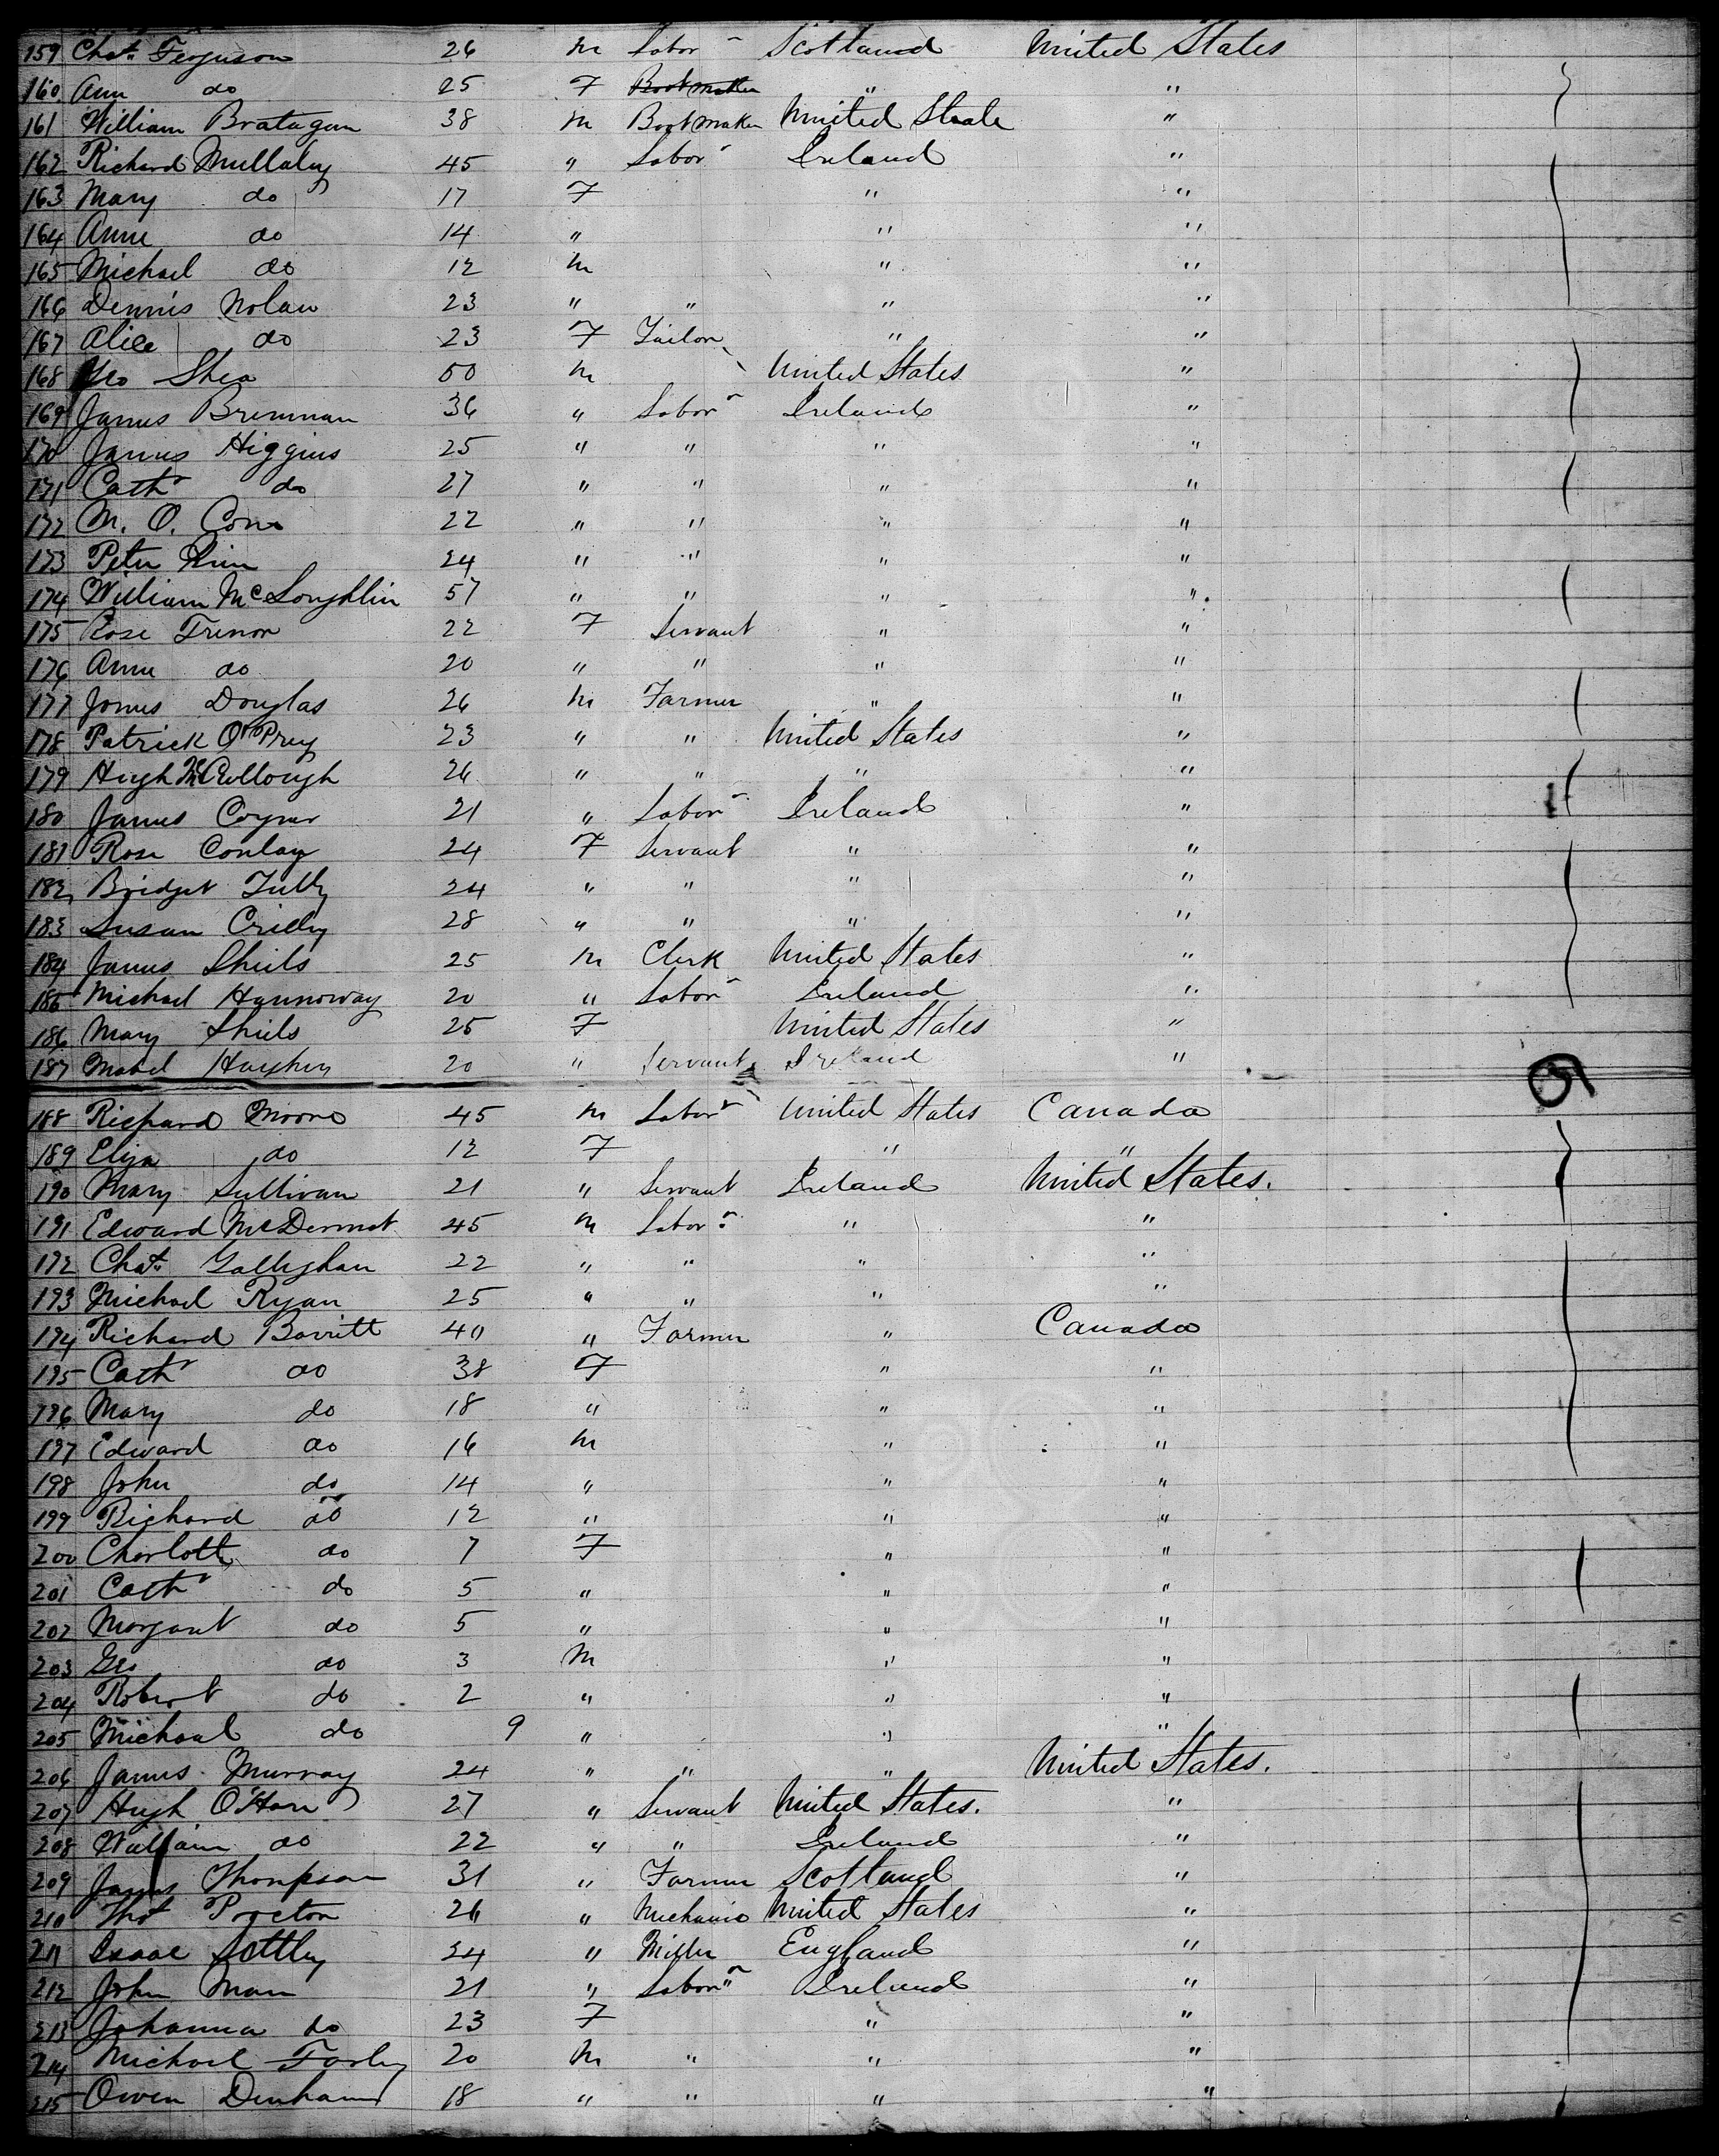 159 Chas. Ferguson 26 m Labor Scotland United States
160 Ann do 25 F Bootmaker " "
161 William Bratagan 38 m Bootmaker United State "
162 Richard Mullaly 45 " Labor Ireland "
163 Mary do 17 F " "
164 Anne do 14 " " "
165 Michael do 12 m " "
166 Dennis Nolan 23 " " " "
167 Alice do 23 F Tailor " "
168 Geo Shea 50 m United States "
169 James Brennan 36 " Labor Ireland "
170 James Higgins 25 " " " "
171 Cathr do 27 " " " "
172 M. O. Con 22 " " " "
173 Peter 24 " " " "
174 William McLoughlin 57 " " " "
175 Rose Trenor 22 F Servant " "
176 Anne do 20 " " " "
177 James Douglas 26 m Farmer " "
178 Patrick O'Prey 23 " " United States "
179 Hugh McCullough 26 " " " "
180 James Coyner 21 " Labor Ireland "
181 Rose Conlay 24 F Servant " "
182 Bridget Tully 24 " " " "
183 Susan Crilly 28 " " " "
184 James Shiels 25 m Clerk United States "
185 Michael Hannoway 20 " Labor Ireland "
186 Mary Shiels 25 F United States "
187 Mabel Haughey 20 " Servant Ireland "
188 Richard Moore 45 m Labor United States Canada
189 Eliza do 12 F " "
190 Mary Sullivan 21 " Servant Ireland United States.
191 Edward McDermot 45 m Labor " "
192 Chas. Gallighan 22 " " " "
193 Michael Ryan 25 " " " "
194 Richard Barritt 40 " Farmer " Canada
195 Cathr do 38 F " "
196 Mary do 18 " " "
197 Edward do 16 m " "
198 John do 14 " " "
199 Richard do 12 " " "
200 Charlotte do 7 F " "
201 Cathr do 5 " " "
202 Margaret do 5 " " "
203 Geo do 3 m " "
204 Robert do 2 " " "
205 Michael do 9 " " "
206 James Murray 24 " " " United States.
207 Hugh O'Hare 27 " Servant United States. "
208 William do 22 " " Ireland "
209 James Thompson 31 " Farmer Scotland "
210 Thos Procton 26 " Mechanic United States "
211 Isaac Sottley 24 " Miller England "
212 John Man 21 " Labor Ireland "
213 Johanna do 23 F " "
214 Michael Farley 20 m " " "
215 Owen Denham 18 " " " "